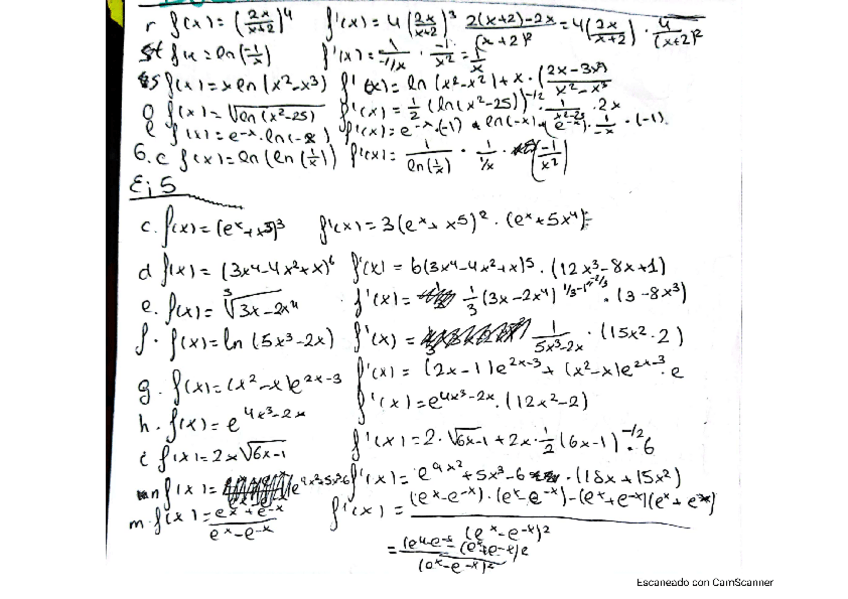 r f(x) = (2x/x+2)^4 f'(x) = 4(2x/x+2)^3 2(x+2)-2x/(x+2)² = 4(2x/x+2) · 4/(x+2)²
f x = ln(-1/x) f'(x) = 1/-1/x · -1/x² = 1/x
s f(x) = x ln(x²-x³) f'(x) = ln(x²-x²) + x · (2x-3x²/x²-x³)
f(x) = √ln(x²-25) f'(x) = 1/2 (ln(x²-25))^-1/2 · 1/x²-25 · 2x
l f(x) = e^-x · ln(-x) f'(x) = e^-x · (-1) ln(-x) + (e^-x) · 1/-x · (-1).
6. c f(x) = ln(ln(1/x)) f'(x) = 1/ln(1/x) · 1/1/x · (-1/x²)
Ej 5
c. f(x) = (e^x + x5)³ f'(x) = 3(e^x + x5)² · (e^x + 5x⁴)
d f(x) = (3x⁴-4x²+x)⁶ f'(x) = 6(3x⁴-4x²+x)5 · (12x³-8x+1)
e. f(x) = ³√3x-2x⁴ f'(x) = 1/3 (3x-2x⁴)^1/3-1^-2/3 · (3-8x³)
f. f(x) = ln(5x³-2x) f'(x) = 1/5x³-2x · (15x²·2)
g. f(x) = (x²-x)e^2x-3 f'(x) = (2x-1)e^2x-3 + (x²-x)e^2x-3 · e
h. f(x) = e^4x³-2x f'(x) = e^4x³-2x · (12x²-2)
i f(x) = 2x√6x-1 f'(x) = 2·√6x-1 + 2x · 1/2 (6x-1)^-1/2 · 6
n f(x) = f'(x) = e^9x² + 5x³-6 · (18x+15x²)
m. f(x) = e^x + e^-x/e^x - e^-x f'(x) = (e^x-e^-x)·(e^x-e^-x)-(e^x+e^-x)(e^x+e^-x)/(e^x-e^-x)²
Escaneado con CamScanner